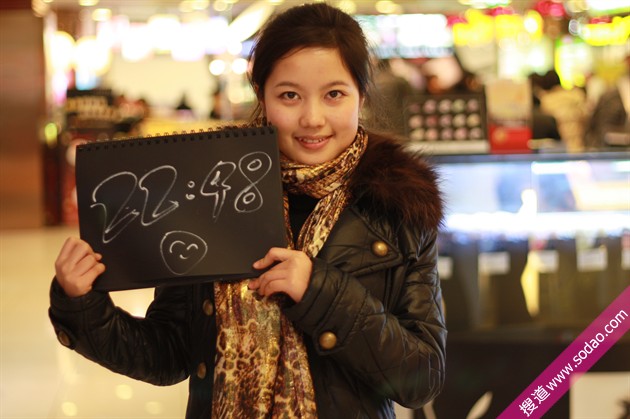 22:48
搜道 www.sodao.com